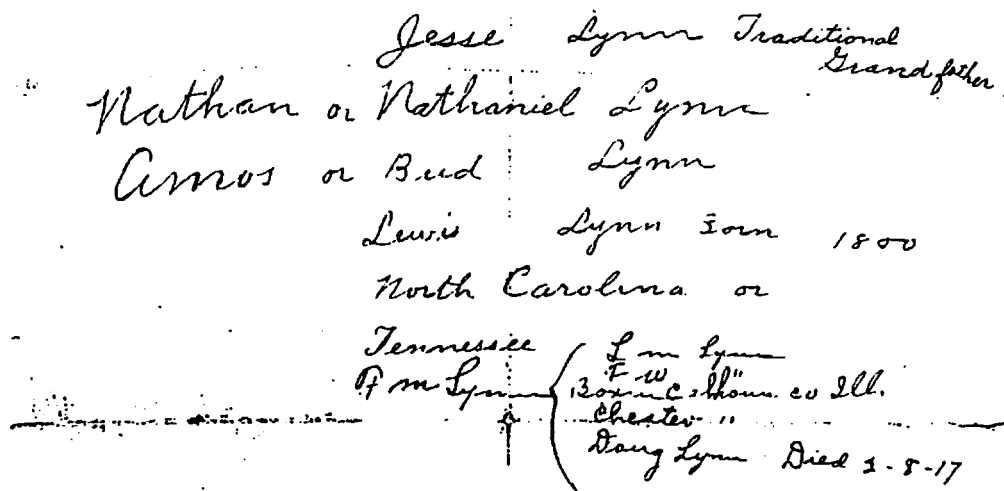 Jesse Lynn Traditional
Grandfather
Nathan or Nathaniel Lynn
Amos or Bud Lynn
Lewis Lynn Born 1800
North Carolina or
Tennessee
F m Lynn
L m Lynn
F W "
Born in Calhoun co Ill.
Chester "
Doug Lynn Died 1-8-17